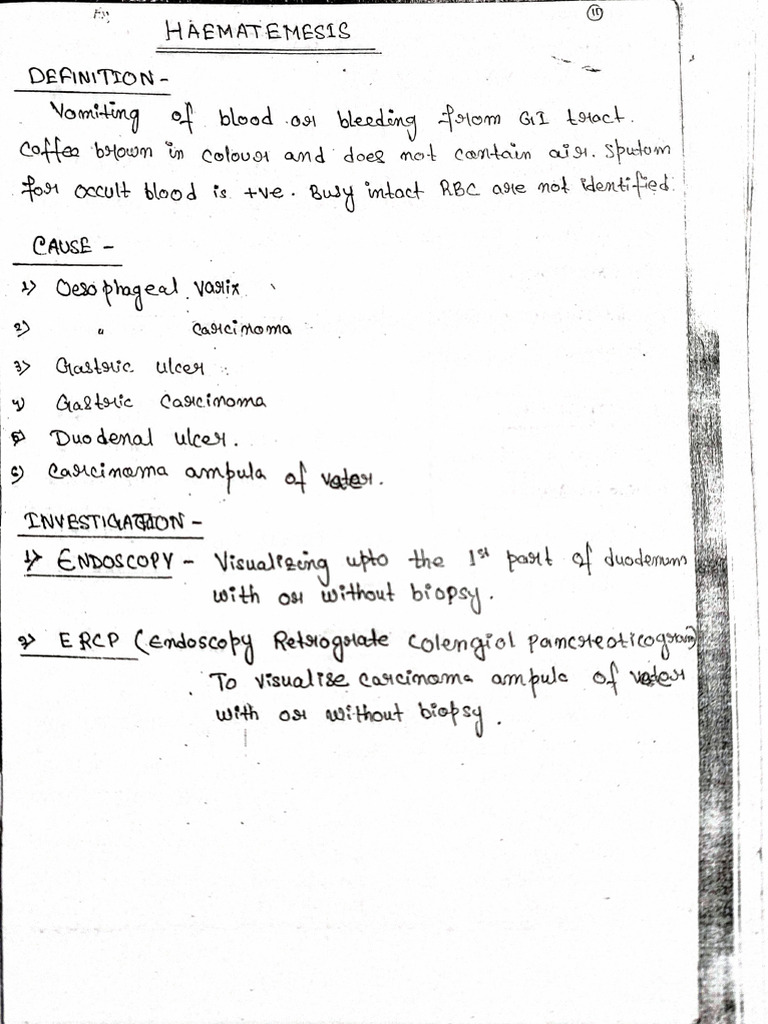 11
HAEMATEMESIS
DEFINITION -
Vomiting of blood or bleeding from GI tract.
Coffee brown in colour and does not contain air. Sputom
for occult blood is +ve. Busy intact RBC are not identified.
CAUSE -
1) Oesophageal varix
2) " carcinoma
3) Gastric ulcer
4) Gastric Carcinoma
5) Duodenal ulcer.
6) Carcinoma ampula of vater.
INVESTIGATION -
1) ENDOSCOPY - Visualizing upto the 1st part of duodenum
with or without biopsy.
2) ERCP (Endoscopy Retrograte Colengiol pancreoticogram)
To visualise carcinoma ampula of vater
with or without biopsy.